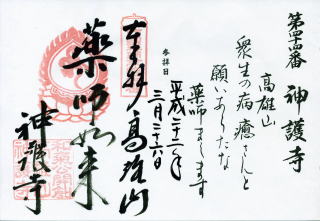 第四十四番　神護寺
高雄山
衆生の病癒さんと
願いあらたな
薬師まします
参拝日
平成二十二年
三月二十六日
奉拝 高雄山
薬師如来
神護寺